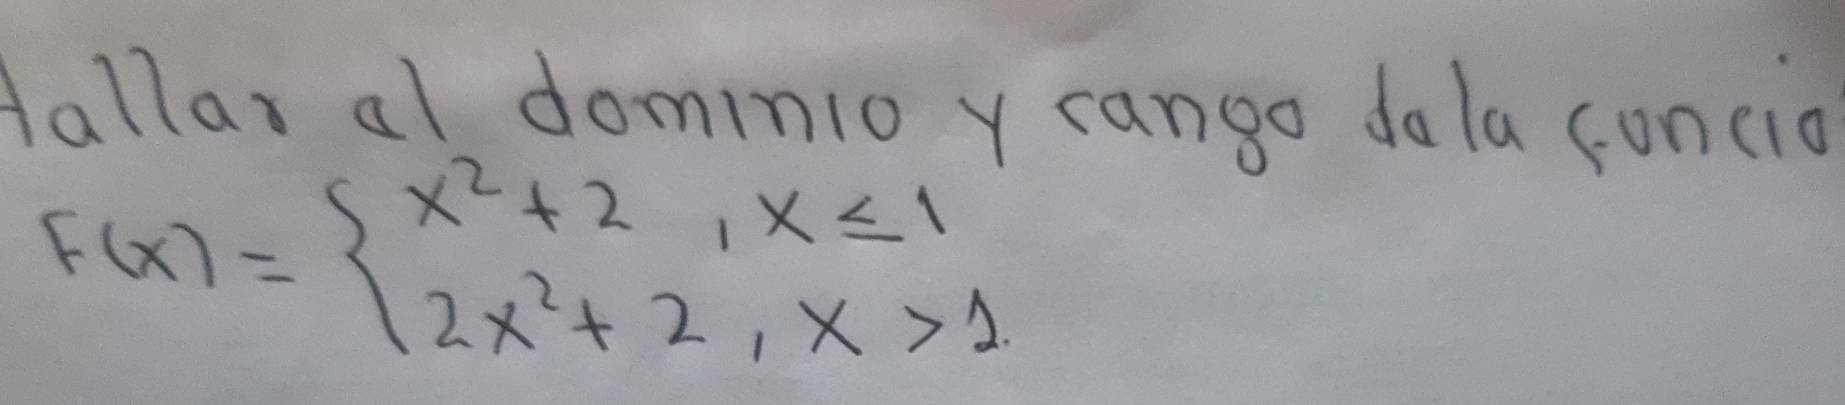 Hallar al dominio y rango dala funcio
F(x) = { x² + 2 , x ≤ 1
2x² + 2 , x > 1.